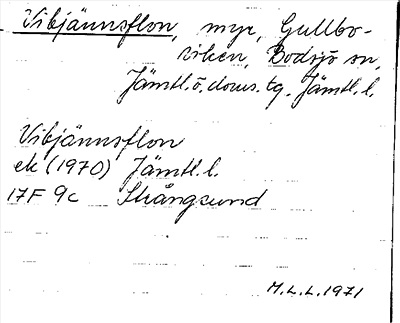 Vibjännsflon, myr, Gullbo-
viken, Bodsjö sn,
Jämtl. ö. doms. tg. Jämtl. l.
Vibjännsflon
ek (1970) Jämtl. l.
17F 9c Stångsund
M.L.L. 1971